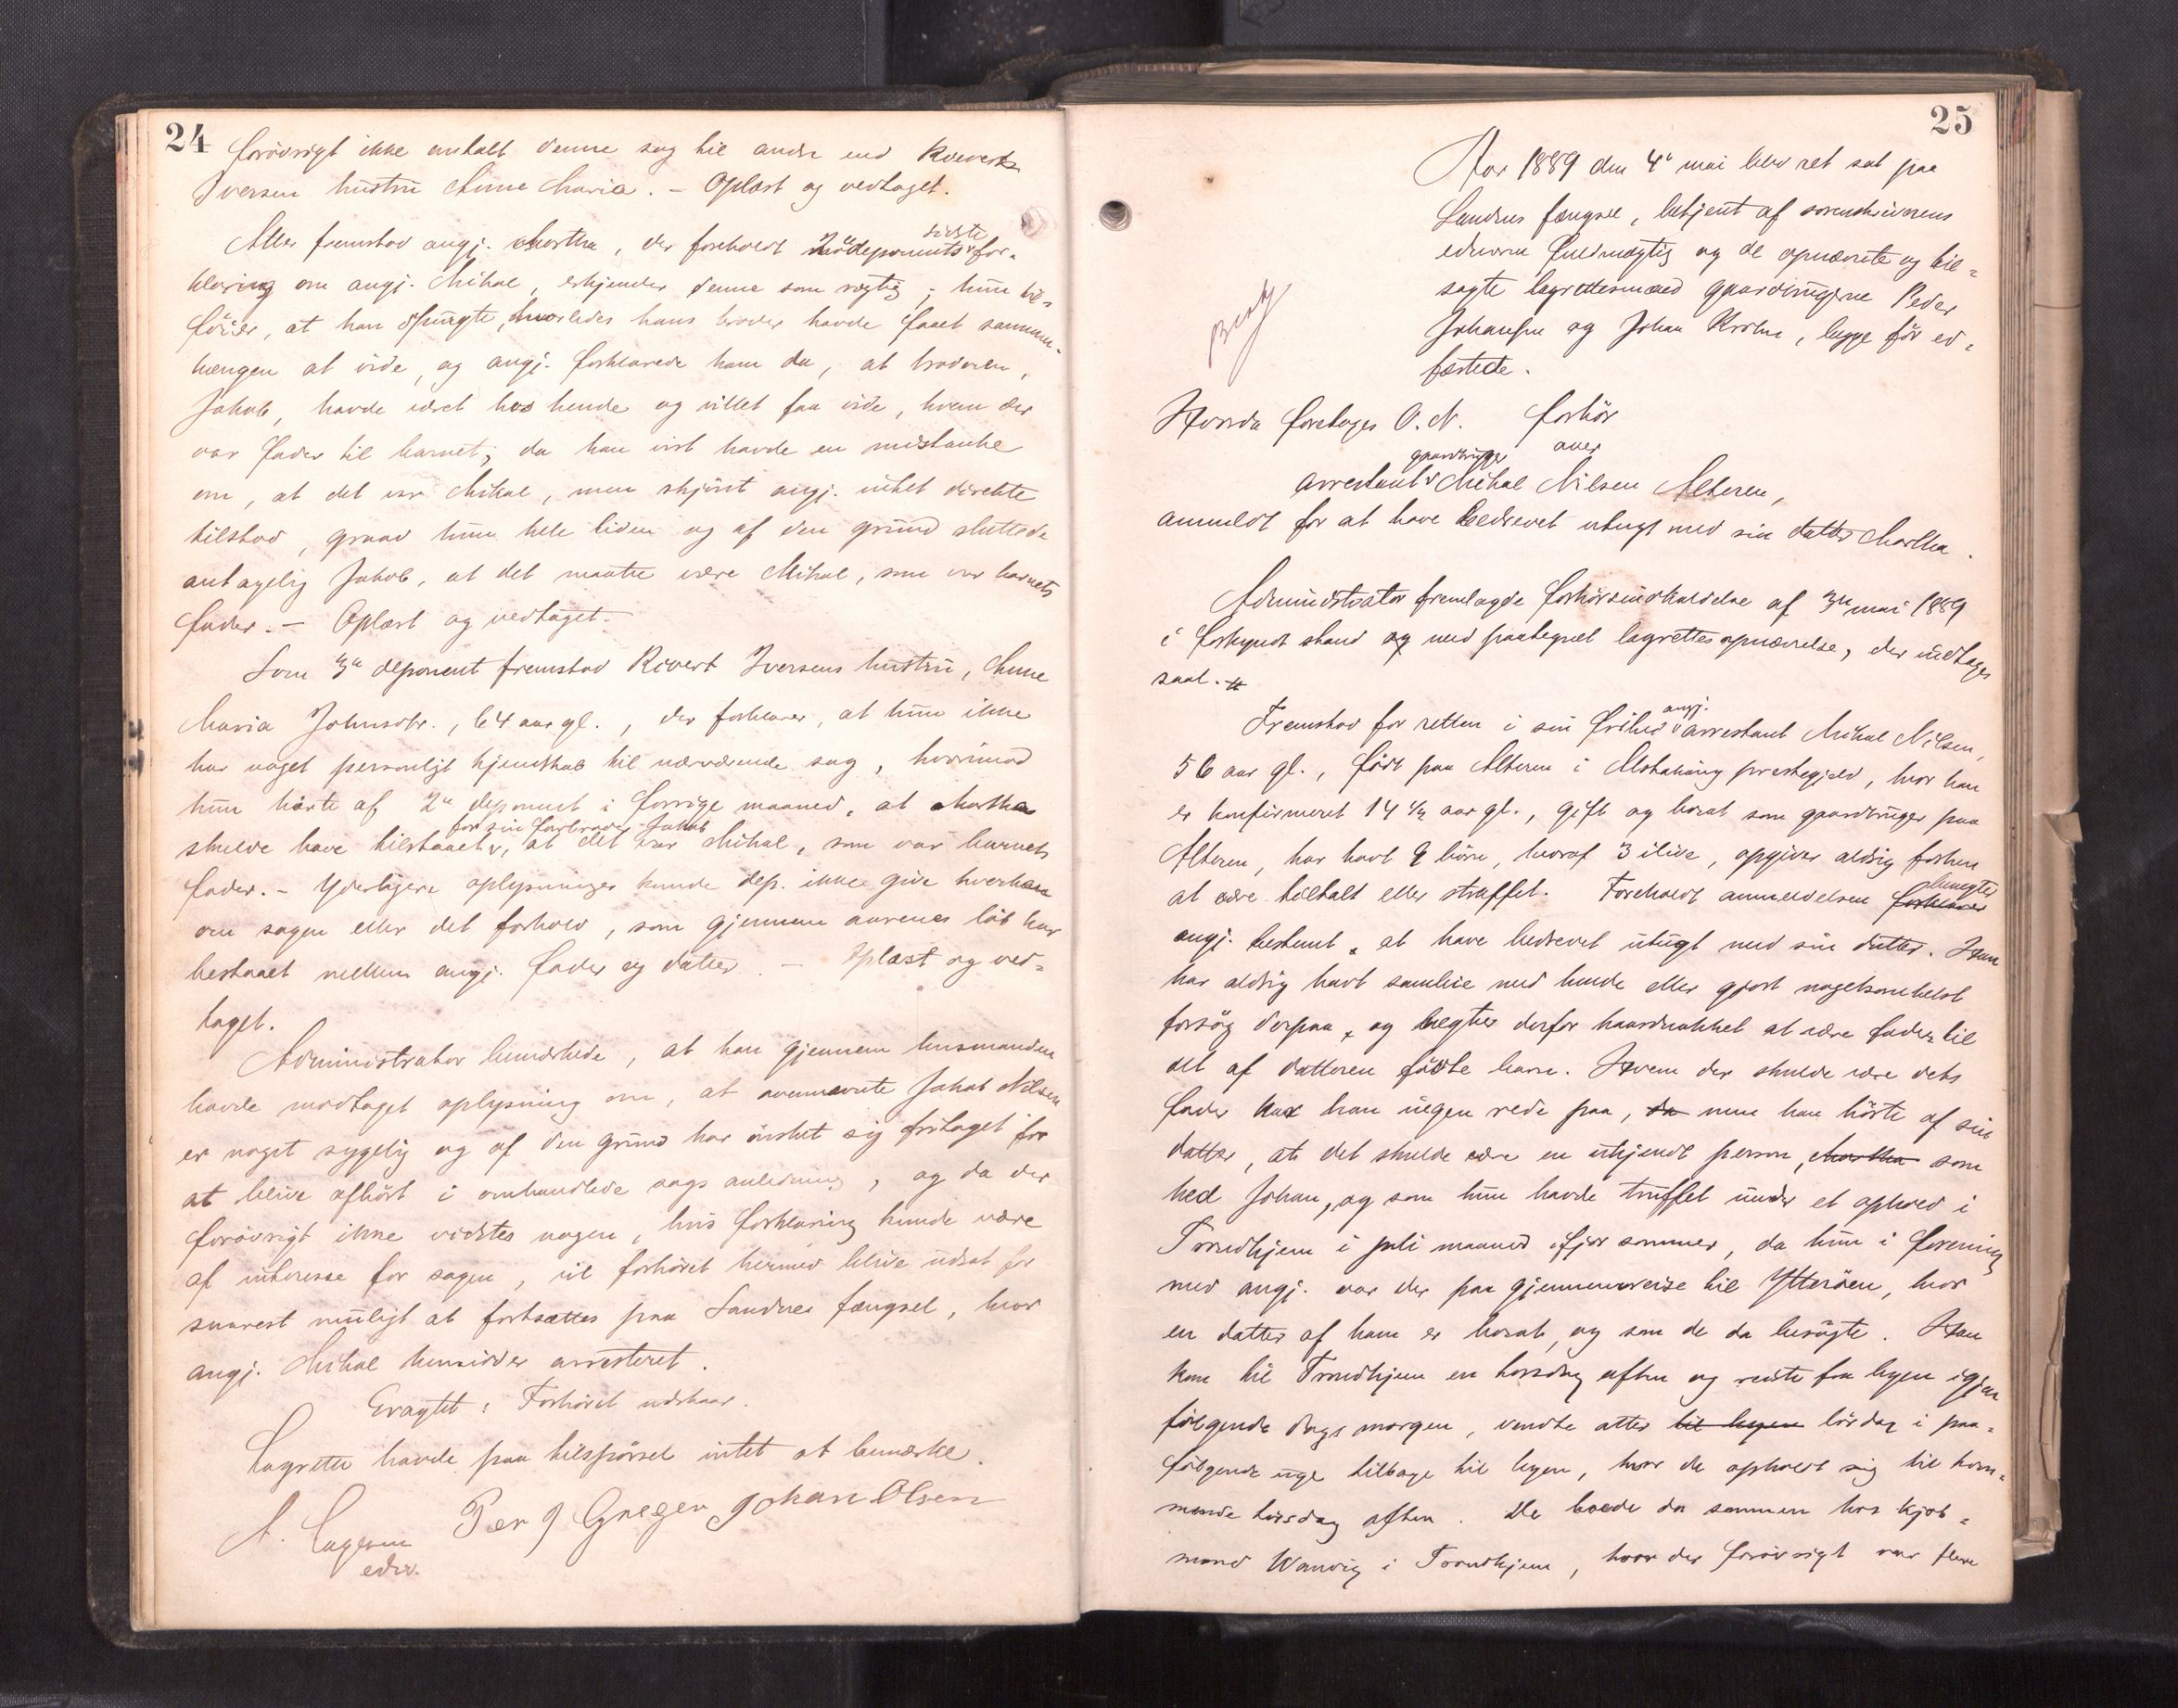 24
forövrigt ikke omtalt denne sag til andre end Rivert
Iversens hustru Anne Maria. – Oplæst og vedtaget.
Atter fremstod angj. Martha, der foreholdt 2den deponents sidste for-
klaring om angj. Mikal, erkjender denne som rigtig; hun til-
föier, at han spurgte, hvorledes hans broder havde faaet sammen-
hængen at vide, og angj. forklarede ham da, at broderen,
Jakob, havde været hos hende og villet faa vide, hvem der
var fader til barnet; da han vist havde en mistanke
om, at det var Mikal, men skjönt angj. intet direkte
tilstod, graad hun hele tiden og af den grund sluttede
antagelig Jakob, at det maatte være Mikal, som var barnets
fader. – Oplæst og vedtaget.
Som 3die deponent fremstod Rivert Iversens hustru, Anne
Maria Johnsdtr., 64 aar gl., der forklarer, at hun ikke
har noget personligt kjendskab til nærværende sag, hvorimod
hun hörte af 2den deponent i forrige maaned, at Martha
skulde have tilstaaet for sin farbroder Jakob, at det var Mikal, som var barnets
fader. – Yderligere oplysninger kunde dep. ikke give hverken
om sagen eller det forhold, som gjennem aarenes löb har
bestaaet mellem angj. fader og datter. – Oplæst og ved-
taget.
Administrator bemærkede, at han gjennem lensmanden
havde modtaget oplysning om, at ovennævnte Jakob Nilsen
er noget sygelig og af den grund har önsket sig fritaget for
at blive afhört i omhandlede sags anledning, og da der
forövrigt ikke vidstes nogen, hvis forklaring kunde være
af interesse for sagen, vil forhöret hermed blive udsat for
snarest muligt at fortsættes paa Sandnes fængsel, hvor
angj. Mikal hensidder arresteret.
Eragtet: Forhöret udstaar.
Lagrette havde paa tilspörsel intet at bemærke.
Per J Gregersen Johan Olsen
edsv.
25
Aar 1889 den 4de mai blev ret sat paa
Sandnes fængsel, betjent af sorenskriverens
edsvorne fuldmægtig og de opnævnte og til-
sagte lagrettesmænd gaardbrugerne Peder
Johansen og Johan Krohn, begge för ed-
fæstede.
Hvorda foretoges O. N. forhör
over
arrestant gaardbruger Mikal Nilsen Alteren,
anmeldt for at have bedrevet utugt med sin datter Martha.
Administrator fremlagde forhörsindkaldelse af 3die mai 1889
i forkyndt stand og med paategnet lagrettesopnævnelse, der indtages
saal.
Fremstod for retten i sin frihed angj. arrestant Mikal Nilsen,
56 aar gl., födt paa Alteren i Alstahaug prestegjeld, hvor han
er konfirmeret 14 ½ aar gl., gift og bosat som gaardbruger paa
Alteren, har havt 9 börn, hvoraf 3 ilive, opgiver aldrig forhen
at være tiltalt eller straffet. Foreholdt anmeldelsen forklarer benegter
angj. bestemt at have bedrevet utugt med sin datter. Han
har aldrig havt samleie med hende eller gjort nogetsomhelst
forsög derpaa, og negter derfor haardnakket at være fader til
det af datteren födte barn. Hvem der skulde være dets
fader har han ingen rede paa, da men han hörte af sin
datter, at det skulde være en ukjendt person, Martha som
hed Johan, og som hun havde truffet under et ophold i
Trondhjem i juli maaned ifjor sommer, da hun i forening
med angj. var der paa gjennemreise til Ytteröen, hvor
en datter af ham er bosat, og som de da besögte. Han
kom til Trondhjem en torsdag aften og reiste fra byen igjen
fölgende dags morgen, vendte atter til byen lördag i paa-
fölgende uge tilbage til byen, hvor de opholdt sig til kom-
mende tirsdag aften. De boede da sammen hos kjöb-
mand Wanvig i Trondhjem, hvor der forövrigt var flere